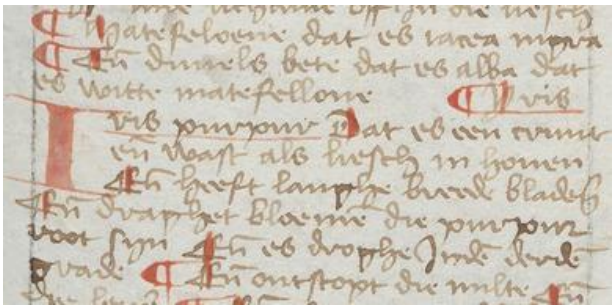 ¶ Matefeloene dat es iacea nigra
¶ En̄ duuels bete dat es alba dat
es witte matefellone ¶ Yris
Iris purpur Dat es een cruut
en̄ wast als liesch in houen
En̄ heeft langhe breede blade
En̄ draghet bloemē die purpur
root syn En̄ es droghe Indē derdē
grade ¶ En̄ ontstopt die milte En̄